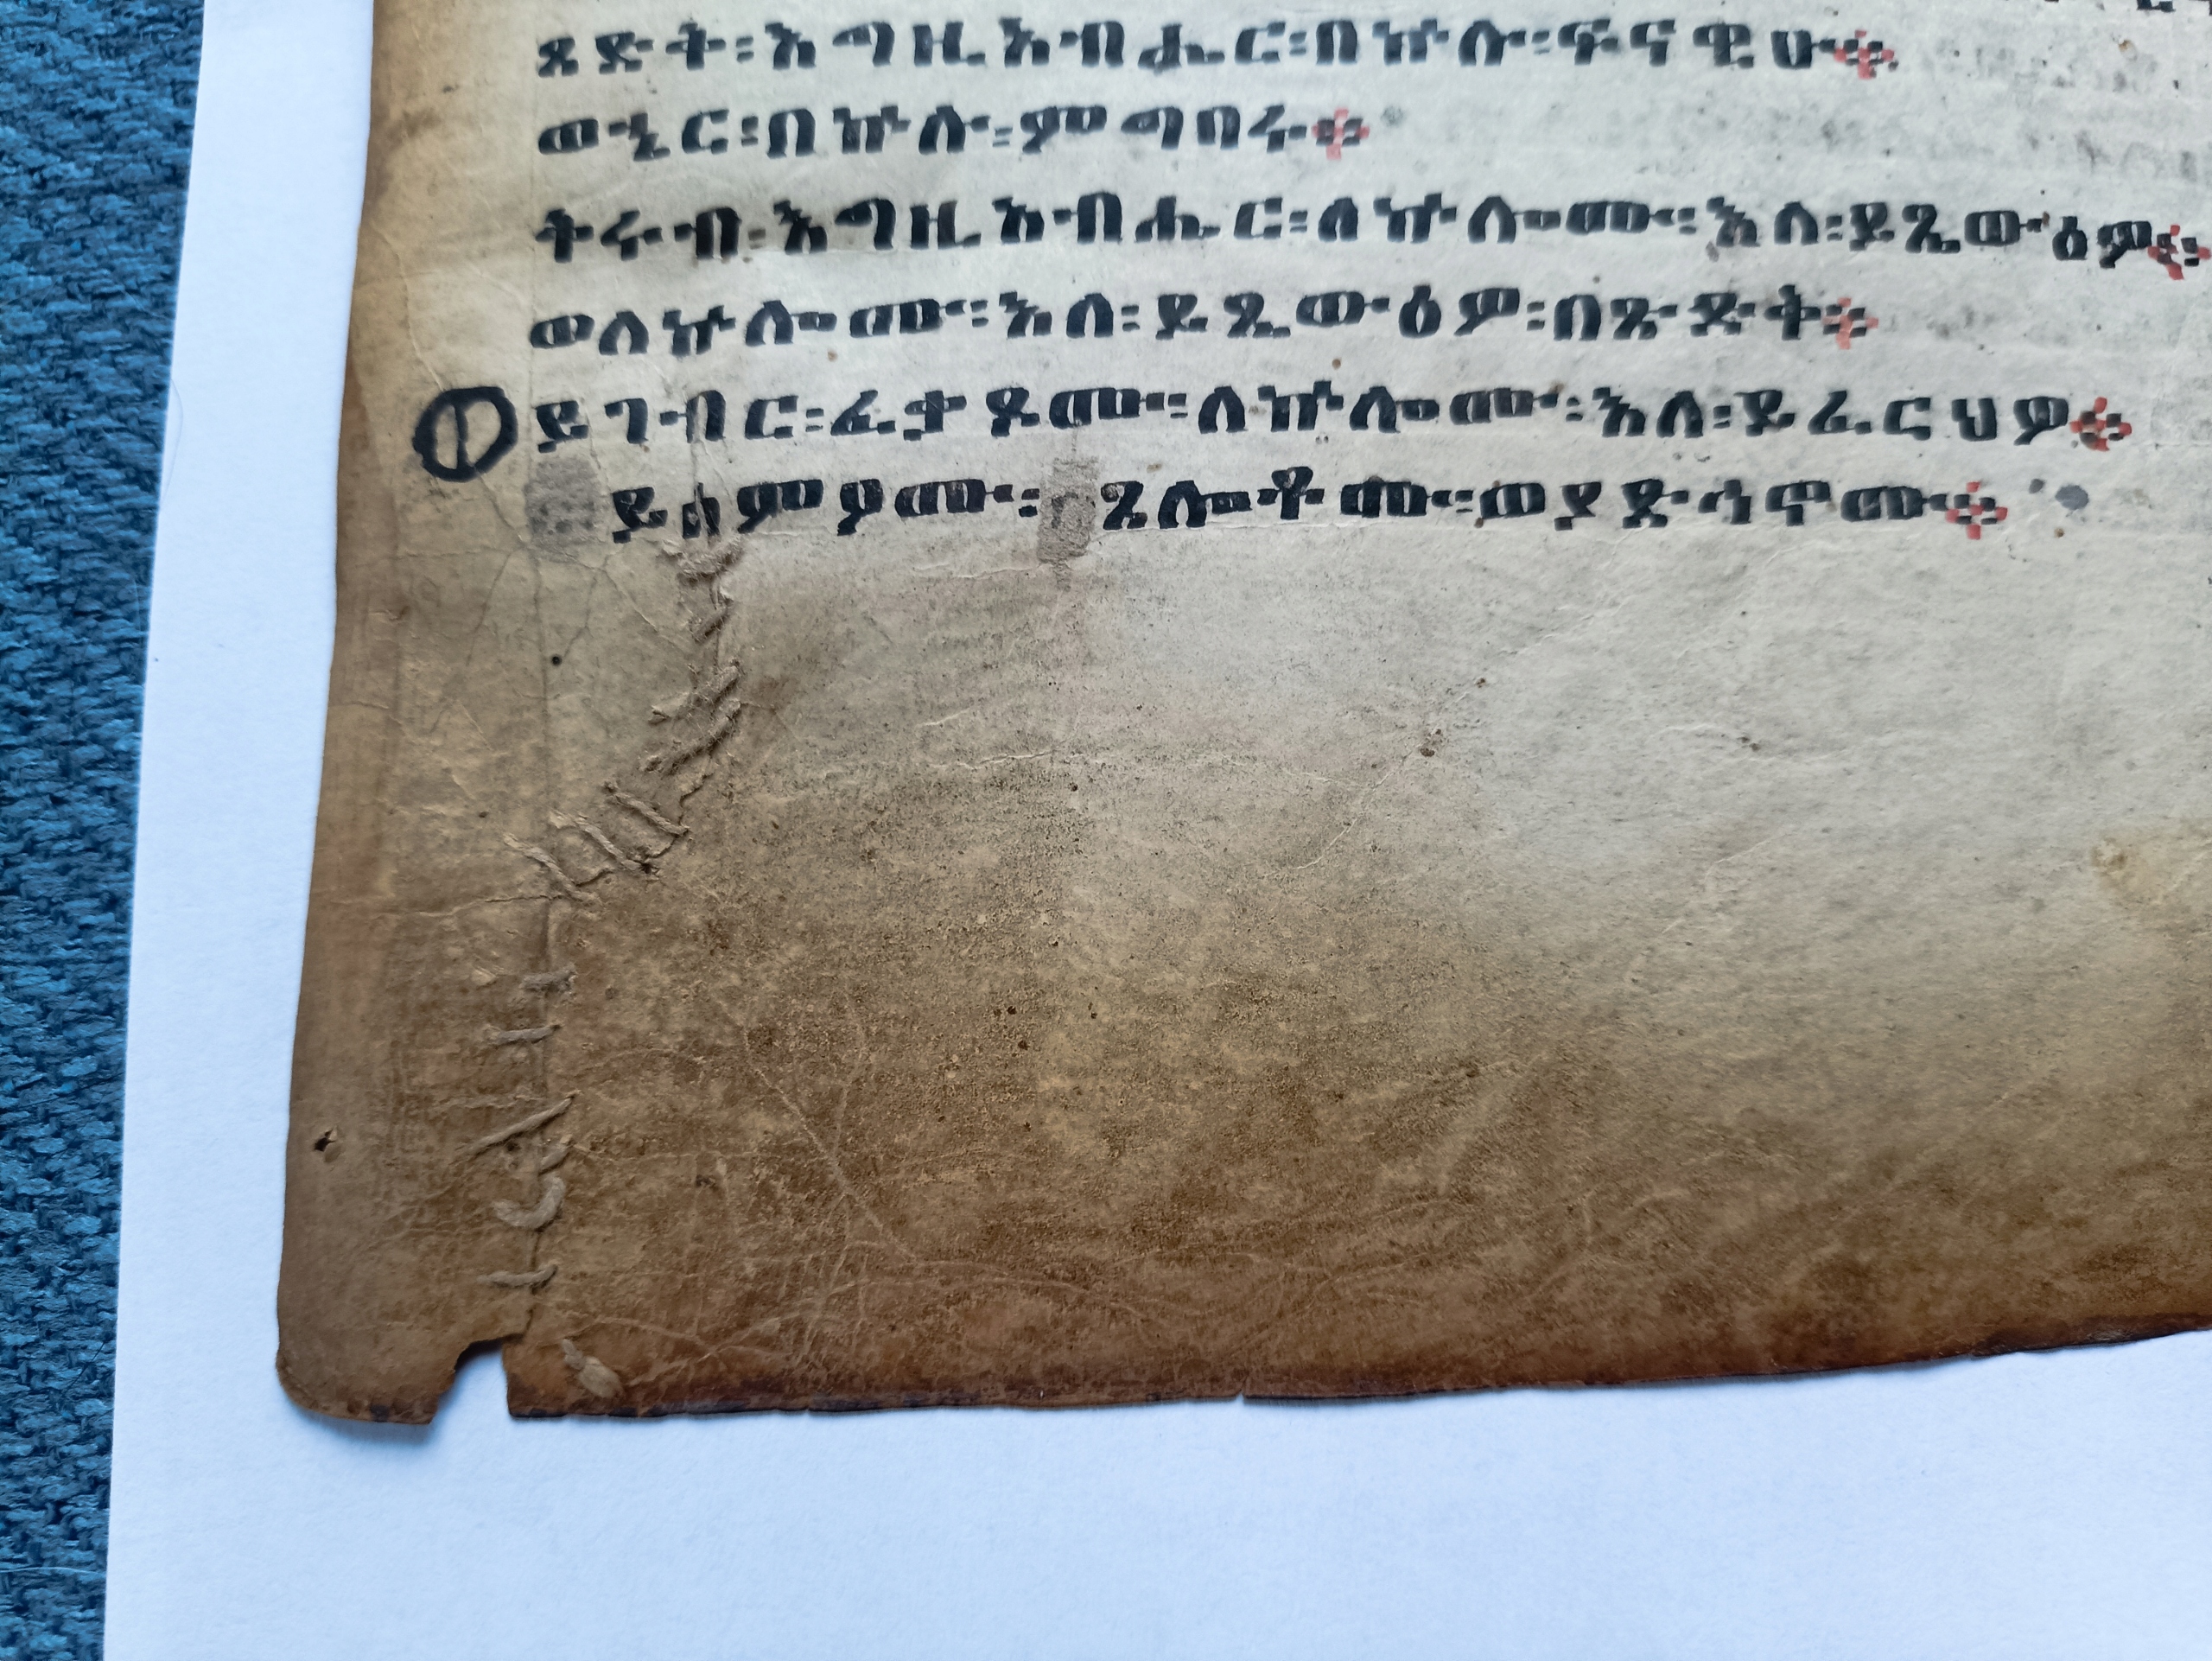 ጻድቅ፡እግዚአብሔር፡በኵሉ፡ፍናዊሁ፨
ወኄር፡በኵሉ፡ምግባሩ፨
ቅሩብ፡እግዚአብሔር፡ለኵሎሙ፡እለ፡ይጼውዕዎ፨
ወለኵሎሙ፡እለ፡ይጼውዕዎ፡በጽድቅ፨
ይገብር፡ፈቃዶሙ፡ለኵሎሙ፡እለ፡ይፈርህዎ፨
ይሰምዖሙ፡ጸሎቶሙ፡ወያድኅኖሙ፨